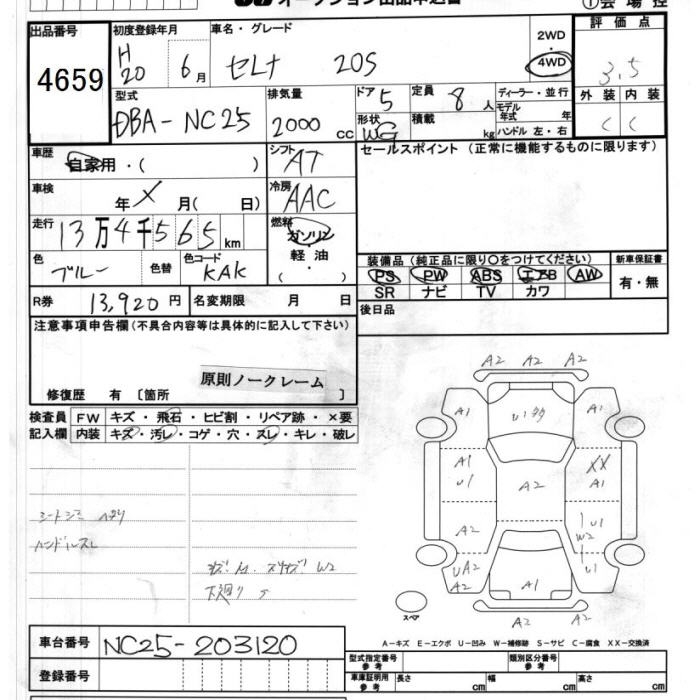 オークション出品申込書
①会場控
出品番号
4659
初度登録年月
H20 6月
車名・グレード
セレナ 20S
2WD
・
4WD
評価点
3.5
型式
DBA-NC25
排気量
2000 cc
ドア 5
形状 WG
定員 8人
積載 kg
ディーラー・並行
モデル年式 年
ハンドル 左・右
外装 内装
C C
車歴
自家用・( )
シフト
AT
セールスポイント (正常に機能するものに限ります)
車検
年 X 月( 日)
冷房
AAC
走行
13万4千565km
燃料
ガソリン
軽油
・( )
色
ブルー
色替
色コード
KAK
装備品 (純正品に限り○をつけてください)
PS PW ABS エアB AW
SR ナビ TV カワ
新車保証書
有・無
R券 13,920円
名変期限 月 日
後日品
注意事項申告欄(不具合内容等は具体的に記入して下さい)
原則ノークレーム
修復歴 有 [箇所 ]
検査員 FW キズ・飛石・ヒビ割・リペア跡・×要
記入欄 内装 キズ・汚レ・コゲ・穴・スレ・キレ・破レ
A2 A2 A2
A1 A1
A1 U1 XX A1
A2
A2 U1 W2
UA2 A1 U1
A2 A2
シートシミ ヘタリ
ハンドルスレ
W2
下廻り
スペア
A-キズ E-エクボ U-凹み W-補修跡 S-サビ C-腐食 XX-交換済
車台番号 NC25-203120
登録番号
型式指定番号 参考
類別区分番号 参考
車庫証明用 参考 長さ cm 幅 cm 高さ cm